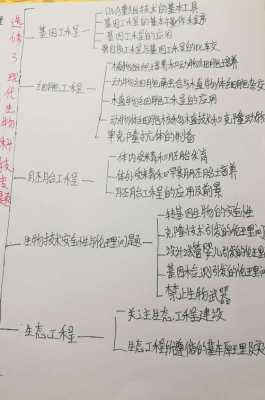 选修3现代生物科技专题
基因工程
DNA重组技术的基本工具
基因工程的基本操作程序
基因工程的应用
蛋白质工程
细胞工程
植物细胞
动物细胞融合与
植物细胞工程的应用
动物体细胞核移植技术和克隆动物
单克隆抗体的制备
胚胎工程
体内受精和胚胎发育
体外受精和早期胚胎培养
胚胎工程的应用及前景
生物技术安全性与伦理问题
转基因生物的安全性
克隆技术引发的伦理问
设计试管婴儿引发的伦理
基因检测引发的伦理问
禁止生物武器
生态工程
关注生态工程建设
生态工程所遵循的基本原理及